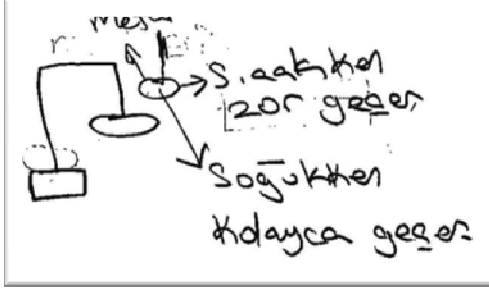 Sıcakken
zor geçer
Soğukken
Kolayca geçer